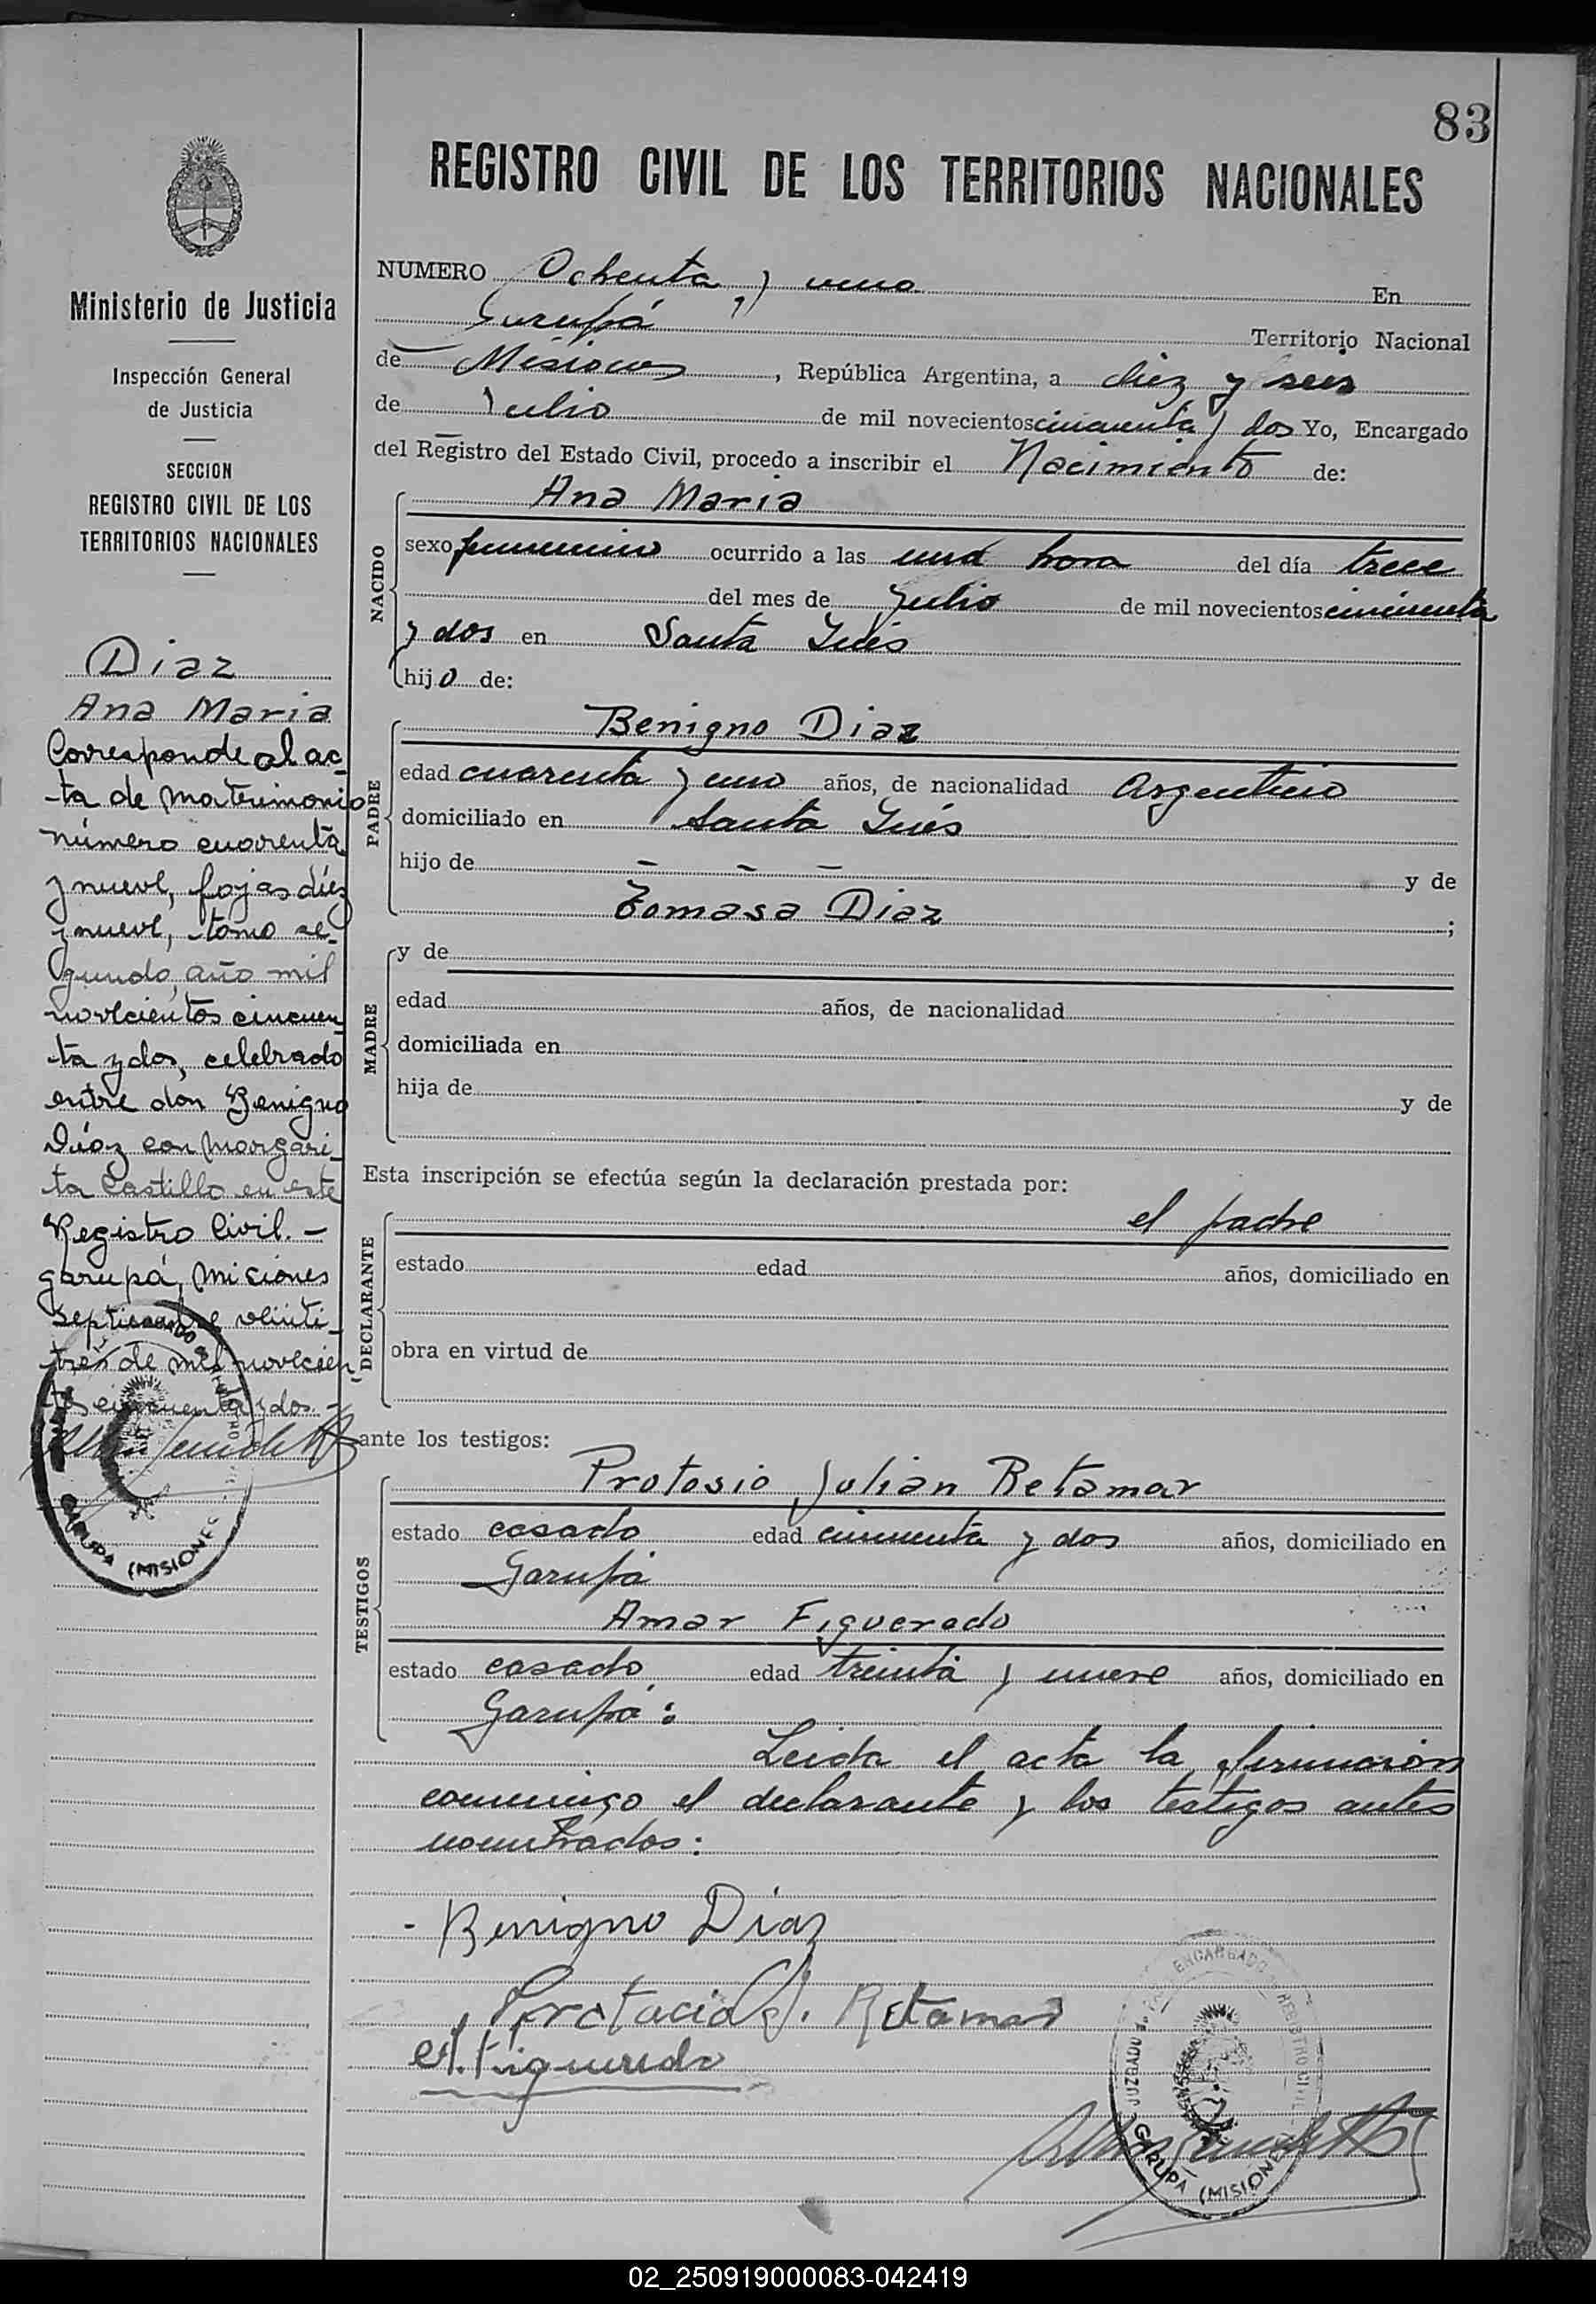 83
REGISTRO CIVIL DE LOS TERRITORIOS NACIONALES
Ministerio de Justicia
Inspección General
de Justicia
SECCION
REGISTRO CIVIL DE LOS
TERRITORIOS NACIONALES
Diaz
Ana Maria
Corresponde al ac-
-ta de matrimonio
número cuarenta
y nueve, fojas diez
y nueve, tomo se-
gundo, año mil
novecientos cincuen
-ta y dos, celebrado
entre don Benigno
Díaz con Margari-
ta Castillo en este
Registro Civil. -
Garupá, Misiones
Septiembre veinti-
tres de mil novecien
tos cincuenta y dos. -
GARUPA (MISIONES
NUMERO Ochenta y uno En
Garupá Territorio Nacional
de Misiones, República Argentina, a diez y seis
de Julio de mil novecientos cincuenta y dos Yo, Encargado
del Registro del Estado Civil, procedo a inscribir el Nacimiento de:
NACIDO
Ana Maria
sexo femenino ocurrido a las una hora del día trece
del mes de Julio de mil novecientos cincuenta
y dos en Santa Inés
hijo de:
PADRE
Benigno Diaz
edad cuarenta y uno años, de nacionalidad Argentino
domiciliado en Santa Inés
hijo de - - - y de
Tomasa Diaz ;
MADRE
y de
edad años, de nacionalidad
domiciliada en
hija de y de
Esta inscripción se efectúa según la declaración prestada por:
DECLARANTE
el padre
estado edad años, domiciliado en
obra en virtud de
ante los testigos:
TESTIGOS
Protosio Julian Retamar
estado casado edad cincuenta y dos años, domiciliado en
Garupá
Amar Figueredo
estado casado edad treinta y nueve años, domiciliado en
Garupá:
Leida el acta la firmaron
conmigo el declarante y los testigos antes
nombrados:
- Benigno Diaz
Protacio J. Retamar
A. Figueredo
JUZGADO DE PAZ ENCARGADO REGISTRO CIVIL
GARUPA (MISIONES
02_250919000083-042419